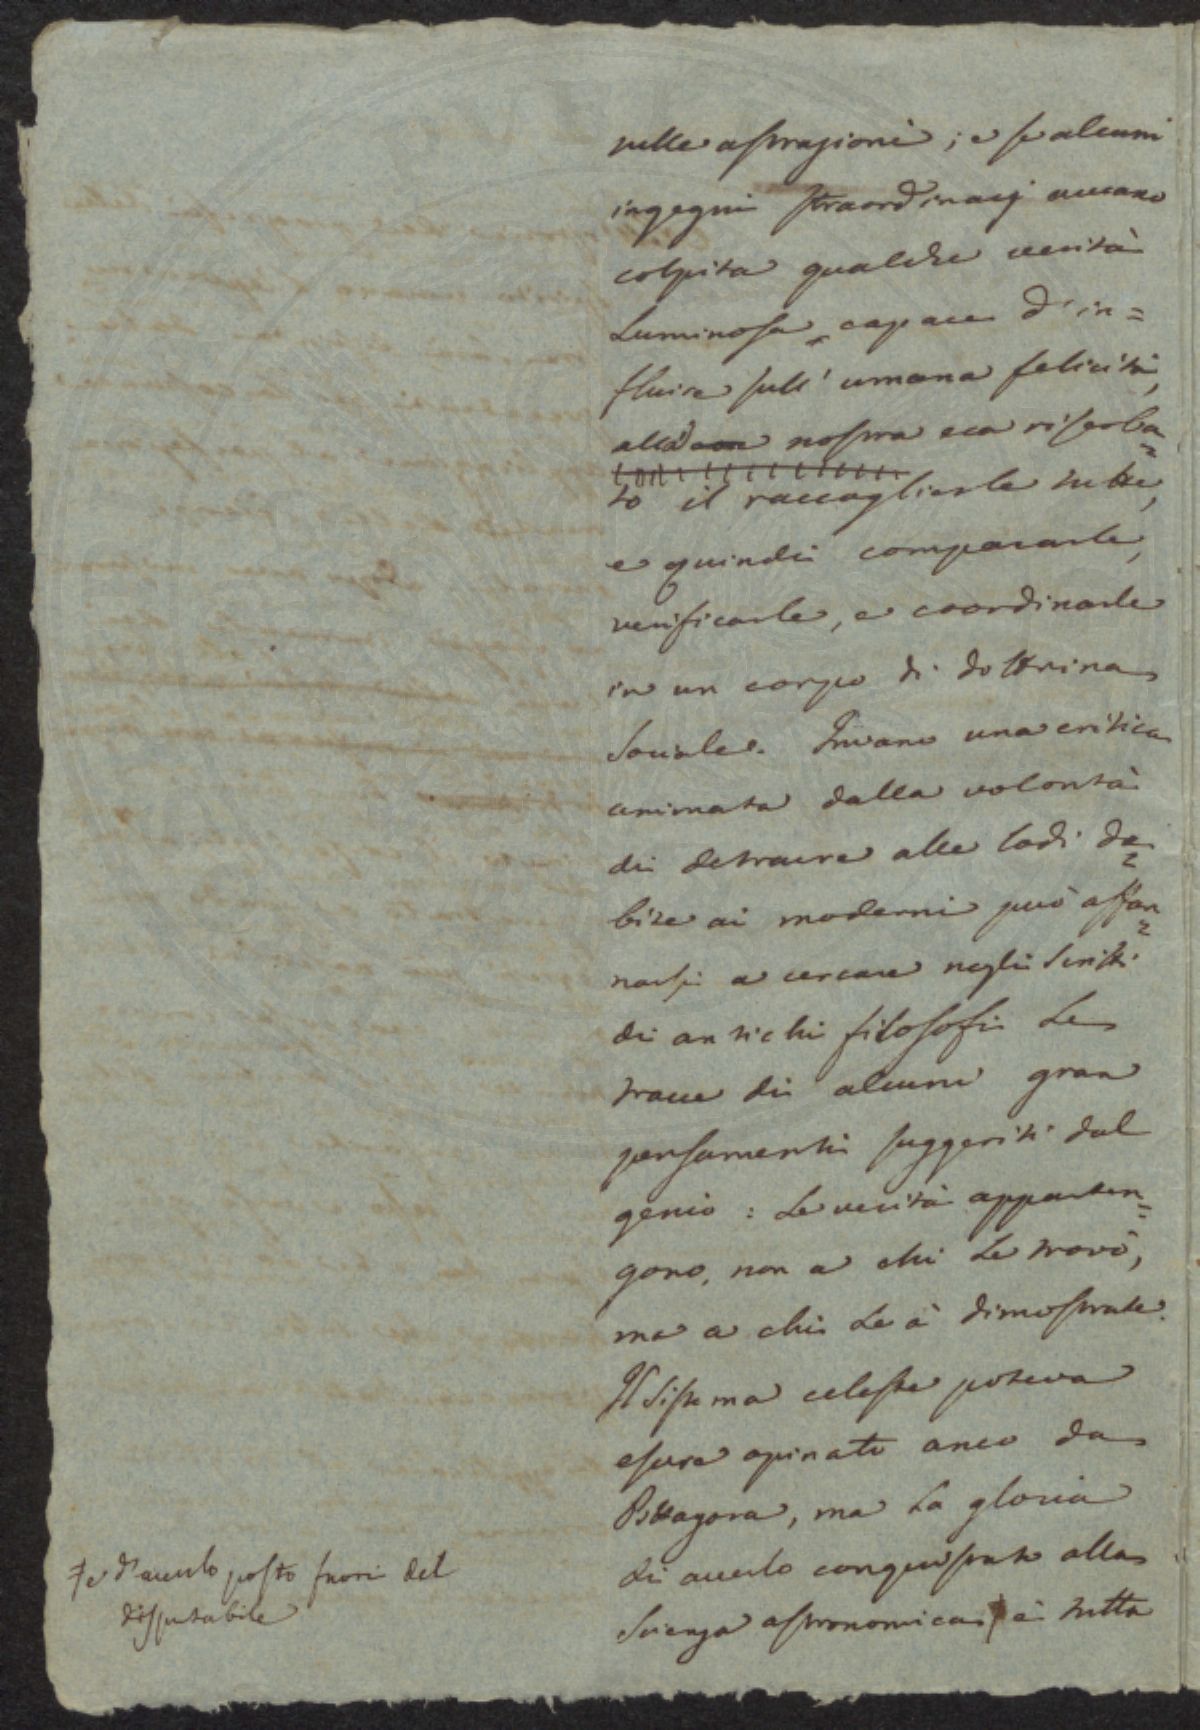 nelle astrazioni; e se alcuni
ingegni straordinarj aveano
colpita qualche verità
luminosa, capace d'in=
fluire sull' umana felicità,
alla nostra era riserba=
to il raccoglierle tutte,
e quindi compararle,
verificarle, e coordinarle
in un corpo di dottrina
sociale. Invano una critica
animata dalla volontà
di detraere alle lodi do=
bite ai moderni può affan=
narsi a cercare negli scritti
di antichi filosofi le
tracce di alcuni gran
pensamenti suggeriti dal
genio: le verità apparten=
gono, non a chi le trovò,
ma a chi le à dimostrate.
Il Sistema celeste poteva
essere opinato anco da
Pittagora, ma la gloria
di averlo conquistato alla
Scienza astronomica è tutta
e d'averlo posto fuori del
disputabile